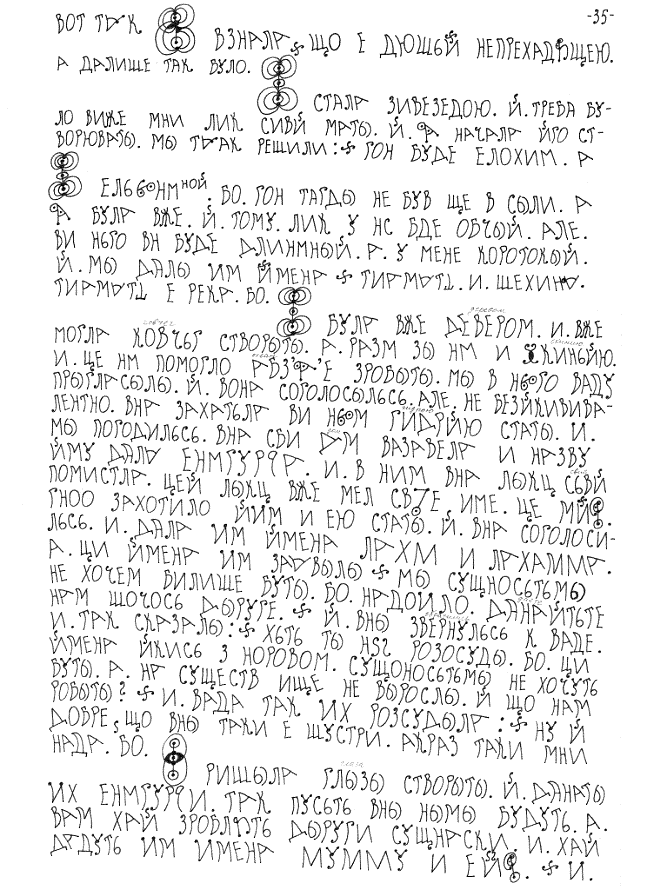 -35-
ВОТ ТАК
ВЗНАЛА, ЩО Е ДЮШЫЙ НЕПРЕХАДЯЩЕЮ.
А ДАЛИШЕ ТАК БУЛО.
СТАЛА ЗИВЕЗЕДОЮ. Й. ТРЕБА БУ-
ЛО ВИЖЕ МНИ ЛИК СИВИЙ МАТЫ. Й. Я НАЧАЛА ЙГО СТ-
ВОРЮВАТЫ. МЫ ТАК РЕШИЛИ: ГОН БУДЕ ЕЛОХИМ. А
БО. ГОН ТАГДЫ НЕ БУВ ЩЕ В СЫЛИ. А
Я БУЛА ВЖЕ. Й. ТОМУ. ЛИК У НС БДЕ ОБЧЫЙ. АЛЕ.
ВИ НЬГО ВН БУДЕ ДЛИНМНЫЙ. А. У МЕНЕ КОРОТОКЫЙ.
Й. МЫ ДАЛЫ ИМ ЙМЕНА ТИАМАТЪ. И. ШЕХИНА.
ТИАМАТЪ Е РЕКА. БО.
БУЛА ВЖЕ ДЕВЕРОМ. И. ВЖЕ
МОГЛА КОВЧЬГ СТВОРЫТЫ. А. РАЗМ ЗЫ НМ И
И. ЦЕ НМ ПОМОГЛО ЗРОБЫТЫ. МЫ В НЬОГО ВАДУ
ПРЫГЛАСЫЛЫ. Й. ВОНА СОГОЛОСЫЛЬСЬ. АЛЕ. НЕ БЕЗЙКИВИВА-
ЛЕНТНО. ВНА ЗАХАТЬЛА ВИ НЬОМ ГИДРИЮ СТАТЫ. И.
МЫ ПОГОДИЛЬСЬ. ВНА СВИ ДМ ВАЗАВЕЛА И НАЗВУ
ЙМУ ДАЛА ЕНМГУРРА. И. В НИМ ВНА ЛЫКЦ СЬВИЙ
ПОМИСТЛА. ЦЕЙ ЛЫКЦ ВЖЕ МЕЛ ИМЕ. ЦЕ
ГНОО ЗАХОТИЛО ЙИМ И ЕЮ СТАТЫ. Й. ВНА СОГОЛОСИ-
ЛЬСЬ. И. ДАЛА ИМ ЙМЕНА ЛАХМ И ЛАХАММА.
А. ЦИ ЙМЕНА ИМ МЫ СУЩНОСЬТЬМЫ
НЕ ХОЧЕМ БИЛИШЕ БУТЫ. БО. НАДОИЛО. ДАНАЙТЬТЕ
НАМ ШОЧОСЬ ДЫРУГЕ. Й. ВНЫ ЗВЕРНУЛЬСЬ К ВАДЕ.
И. ТАК СКАЗАЛЫ: ХЬТЬ ТЫ РОЗОСУДЫ. БО. ЦИ
ЙМЕНА ЙКИСЬ З НОРОВОМ. СУЩОНОСЬТЬМЫ НЕ ХОЧУТЬ
БУТЫ. А. НА СУЩЕСТВ ИЩЕ НЕ ВЫРОСЛЫ. Й ЩО НАМ
РОБЫТЫ? И. ВАДА ТАК ИХ РОЗСУДЫЛА: НУ Й
ДОБРЕ, ЩО ВНЫ ТАКИ Е ШУСТРИ. АКРАЗ ТАКИ МНИ
НАДА. БО.
РИШЫЛА ГЛЫЗЫ СТВОРЫТЫ. Й. ДАНАТЫ
ИХ ЕНМГУРРИ. ТАК ПУСЬТЬ ВНЫ НЫМЫ БУДУТЬ. А.
ВАМ ХАЙ ЗРОБЛЯТЬ ДЫРУГИ СУЩНАСКИ. И. ХАЙ
ДАДУТЬ ИМ ИМЕНА МУММУ И И.